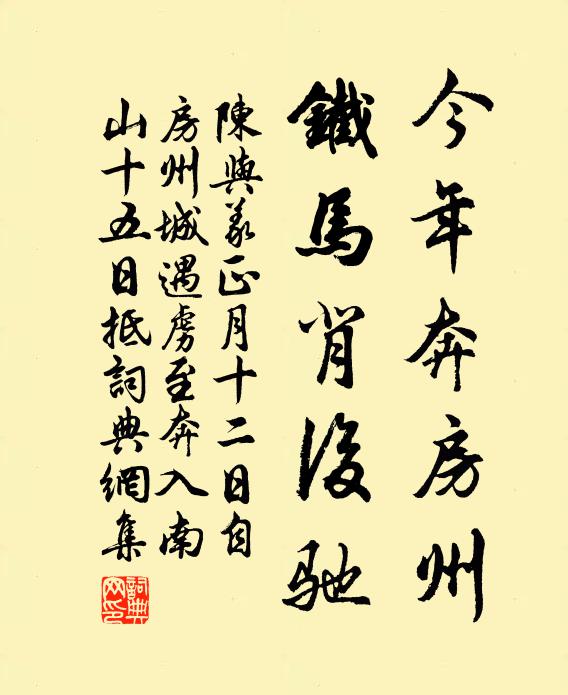 今年奔房州
鐵馬背後馳
陳與義正月十二日自
房州城遇虜至奔入南
山十五日抵詞典網集
詞典網印